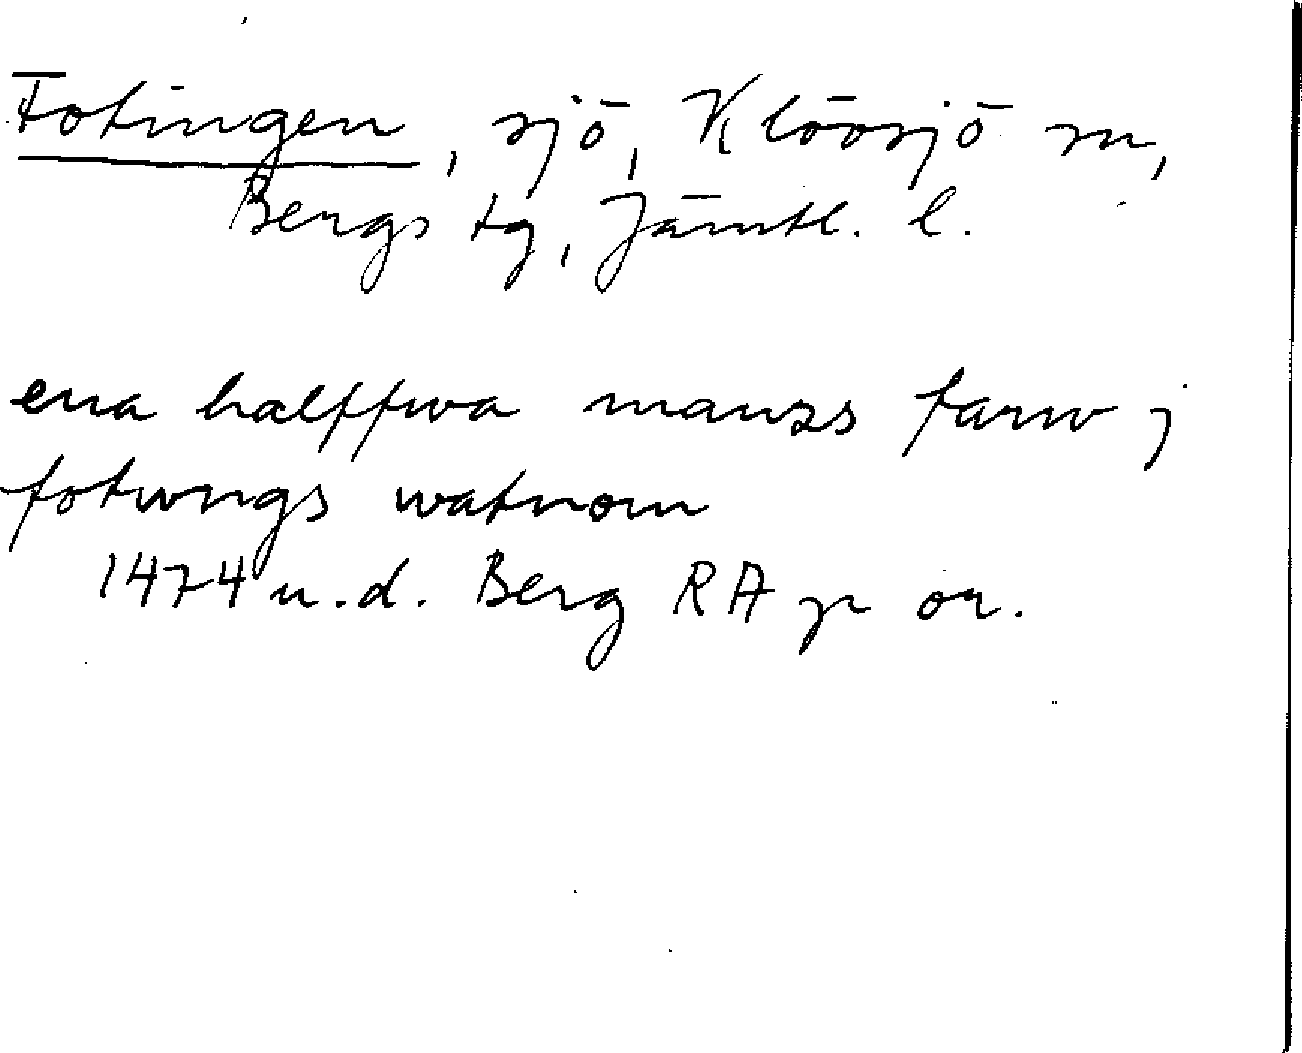 Fotingen, sjö, Klövsjö sn,
Bergs tg, Jämtl. l.
ena halffwa manzs farw j
fotwngs watnom
1474 u.d. Berg RA p or.